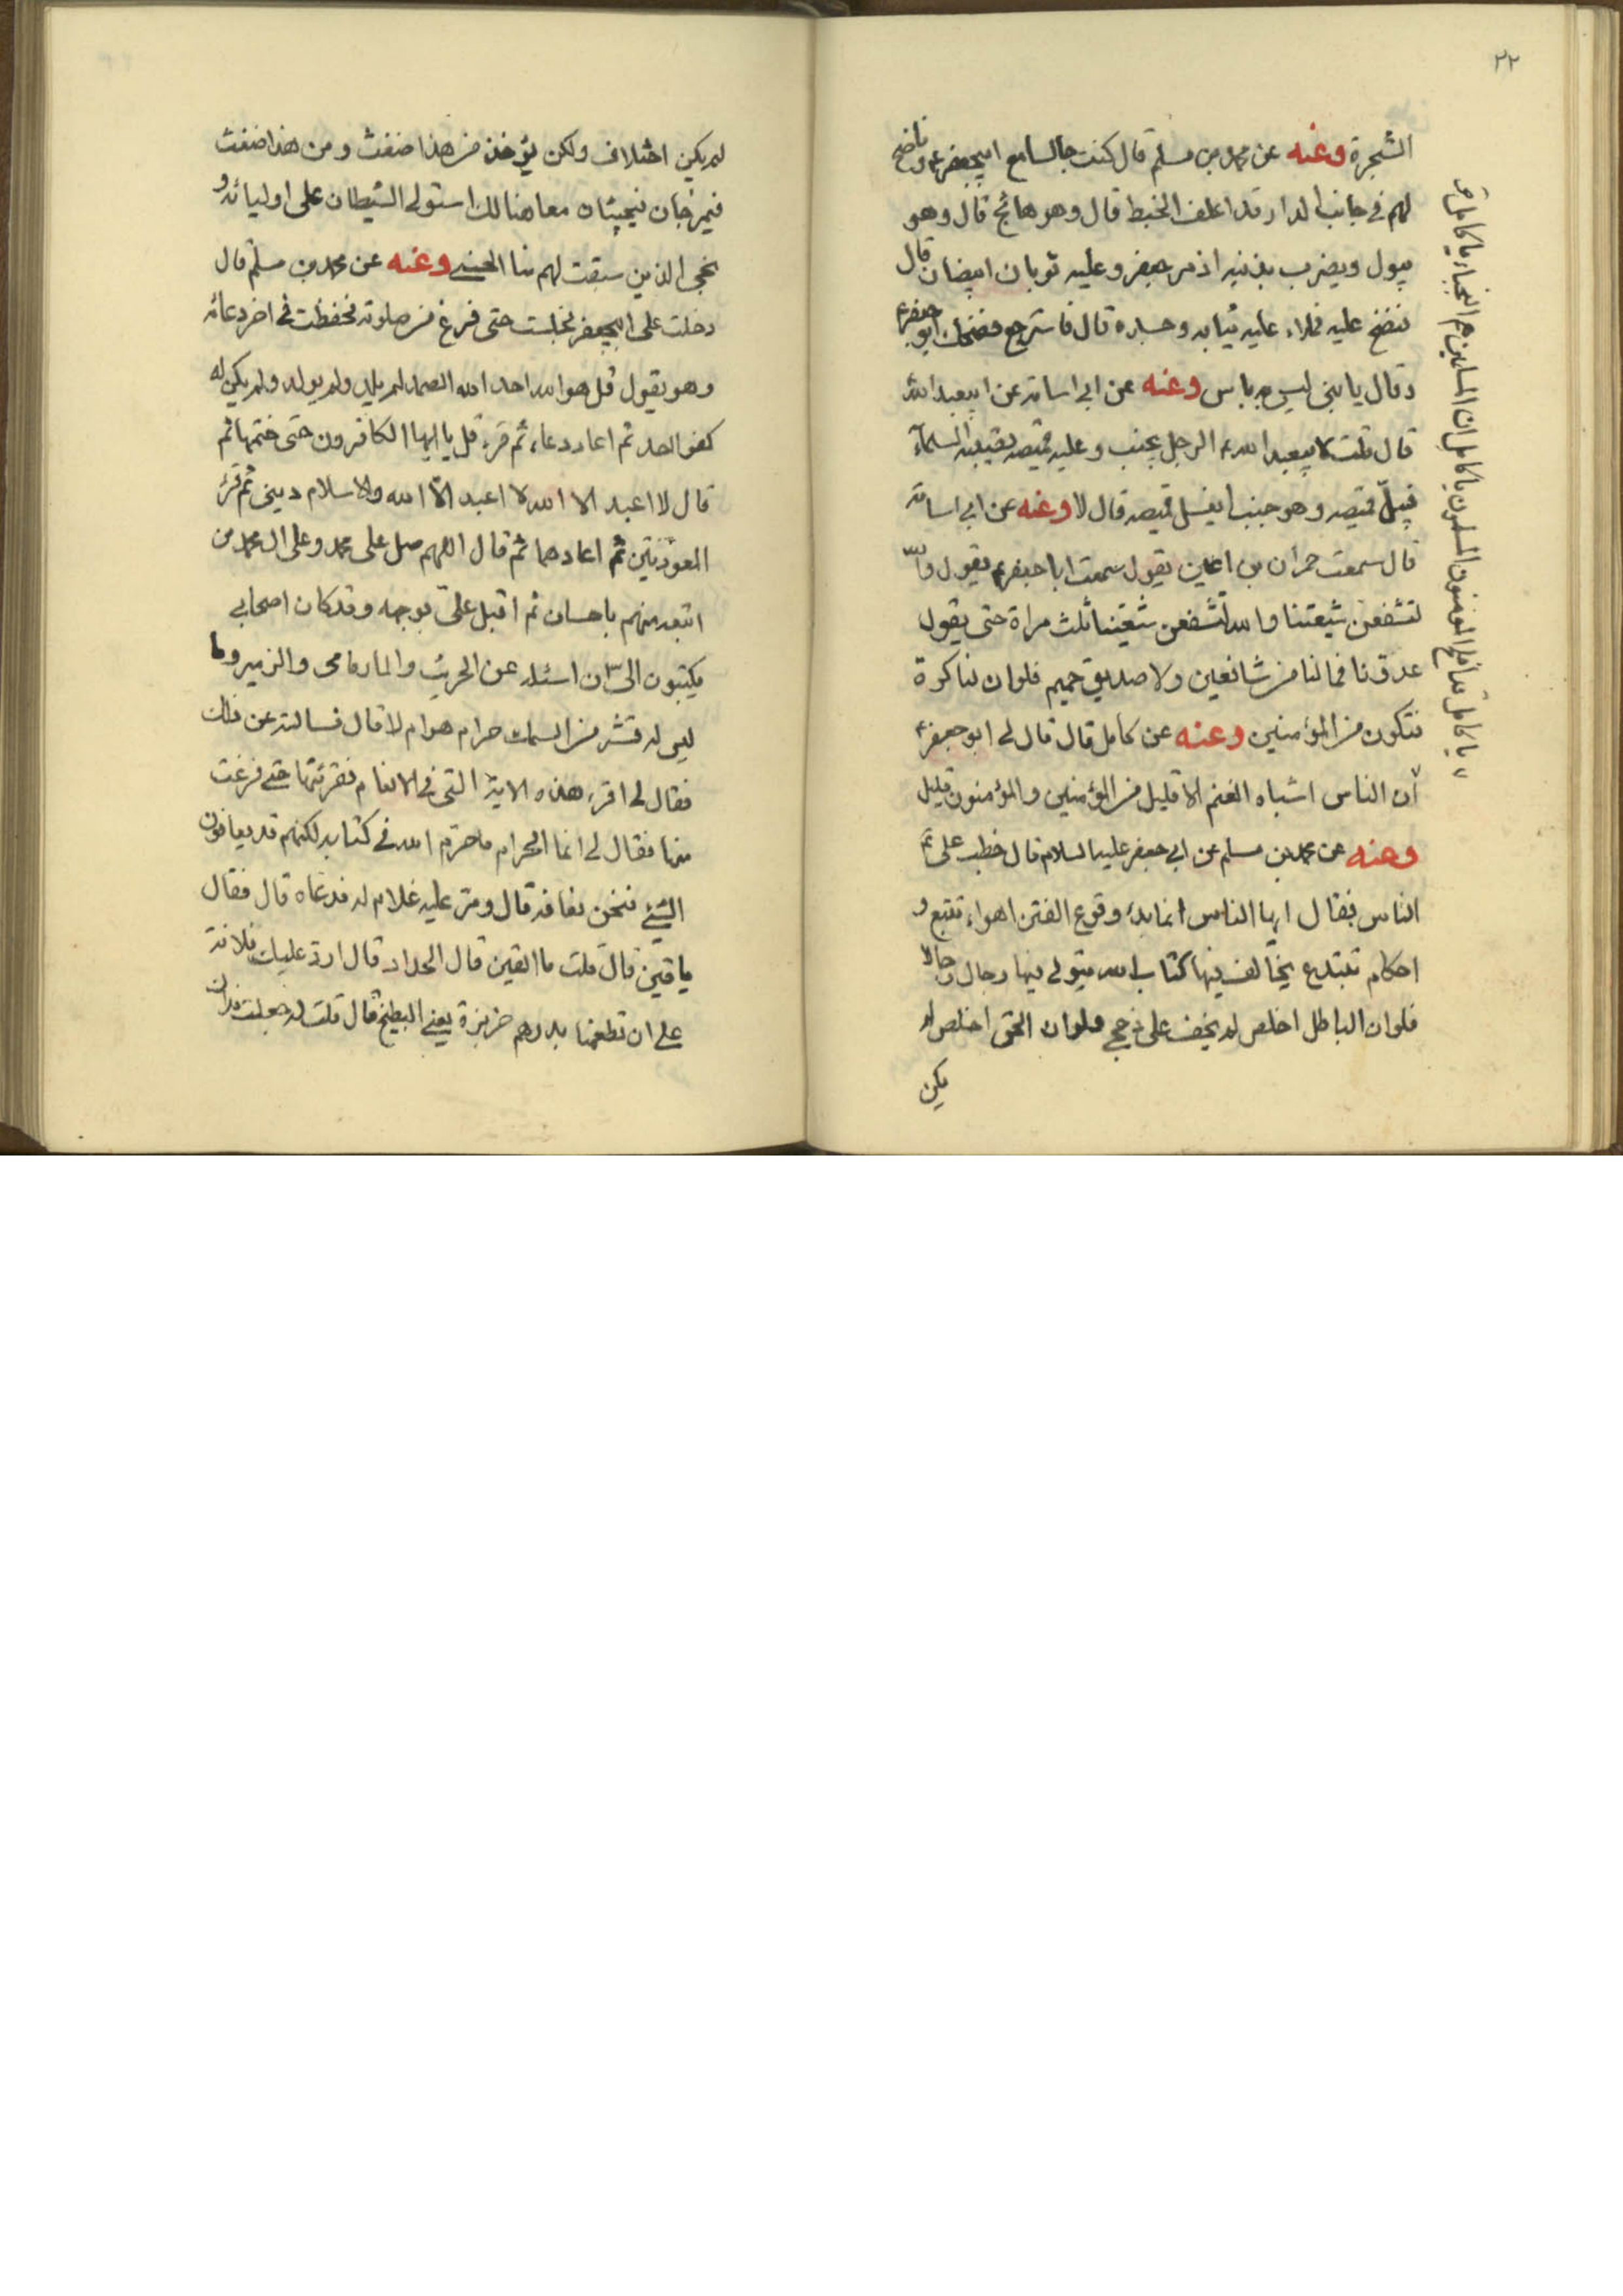 ٢٢
الشجرة وعنه عن محمد بن مسلم قال كنت جالسا مع ابيجعفر ع وناضح
لهم في جانب الدار قد اعلف الخبط قال وهو هائج قال وهو
يبول ويضرب بذنبه اذ مر جعفر وعليه ثوبان ابيضان قال
فنضخ عليه فملاء عليه ثيابه وجسده قال فاسترجع فضحك ابو جعفر ع
وقال يا بني ليس به باس وعنه عن ابي اسامة عن ابيعبد الله
قال قلت لابيعبد الله ع الرجل يجنب وعليه قميصه يصيبه السماء
فيبلّ قميصه وهو جنب ايغسل قميصه قال لا وعنه عن ابي اسامة
قال سمعت حمران بن اعين يقول سمعت ابا جعفر ع يقول والله
لنشفعن شيعتنا والله لنشفعن شيعتنا ثلث مراة حتى يقول
عدوّنا فما لنا من شافعين ولا صديق حميم فلو ان لنا كرة
فنكون من المؤمنين وعنه عن كامل قال قال لي ابو جعفر ع
ان الناس اشباه الغنم الا قليل من المؤمنين والمؤمنون قليل
وعنه عن محمد بن مسلم عن ابي جعفر عليه السلام قال خطب على ع
الناس فقال ايها الناس انما بدء وقوع الفتن اهواء تتبع و
احكام تبتدع يخالف فيها كتاب الله يتولى فيها رجال رجالا
فلو ان الباطل اخلص لم يخف على ذي حجي ولو ان الحق اخلص لم
يكن
يا كامل قد افلح المؤمنون المسلمون يا كامل ان المسلمين هم النجباء يا كامل
لم يكن اختلاف ولكن يؤخذ من هذا ضغث ومن هذا ضغث
فيمزجان فيجيئان معا هنالك استولى الشيطان على اوليائه و
نجى الذين سبقت لهم منا الحسنى وعنه عن محمد بن مسلم قال
دخلت على ابيجعفر فجلست حتى فرغ من صلوته فحفظت في اخر دعائه
وهو يقول قل هو الله احد الله الصمد لم يلد ولم يولد ولم يكن له
كفوا احد ثم اعاد دعاء ثم قرء قل يا ايها الكافرون حتى ختمها ثم
قال لا اعبد الا الله لا اعبد الا الله والاسلام ديني ثم قرء
المعوذتين ثم اعادهما ثم قال اللهم صل على محمد وعلى ال محمد من
اتبعه منهم باحسان ثم اقبل علىّ بوجهه وقد كان اصحابي
يكتبون الىّ ان اسئله عن الجريث والمارماهى والزمير وما
ليس له قشر من السمك حرام هو ام لا قال فسالته عن ذلك
فقال لي اقرء هذه الاية التي في الانعام فقرئتها حتى فرغت
منها فقال لي انما الحرام ما حرّم الله في كتابه لكنهم قد يعافون
الشيئ فنحن نعافه قال ومرّ عليه غلام له فدعاه قال فقال
يا قين قال قلت ما القين قال الحداد قال اردّ عليك فلانة
على ان تطعمنا بدرهم خربزة يعني البطيخ قال قلت له جعلت فداك